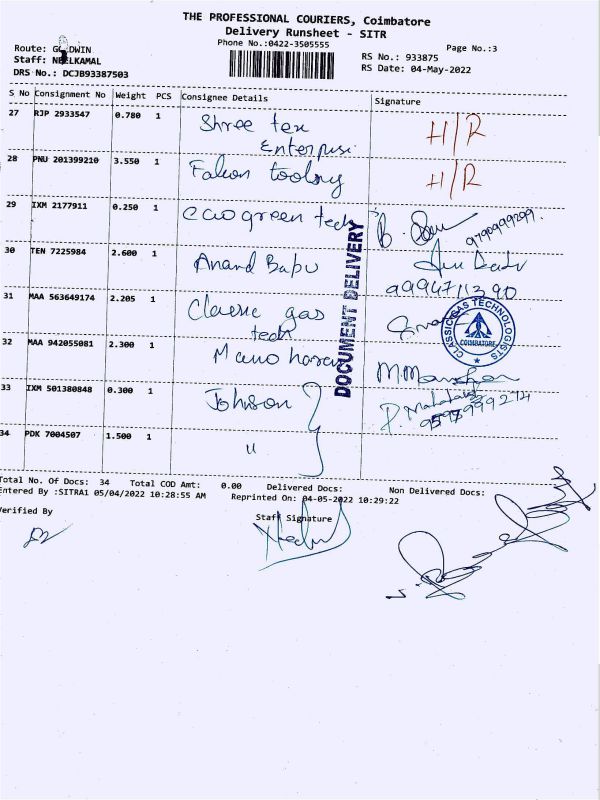 THE PROFESSIONAL COURIERS, Coimbatore
Delivery Runsheet - SITR
Phone No.:0422-3505555
Page No.:3
Route: GODWIN
Staff: NEELKAMAL
DRS No.: DCJB93387503
RS No.: 933875
RS Date: 04-May-2022
S No Consignment No Weight PCS Consignee Details Signature
27 RJP 2933547 0.780 1 Shree tex H/R
Enterprise
28 PNU 201399210 3.550 1 Falcon H/R
29 IXM 2177911 0.250 1 green tech 9790999299.
30 TEN 7225984 2.600 1 Anand Babu
9994711390
31 MAA 563649174 2.205 1 Classic gas
tech
32 MAA 942055081 2.300 1 Manoharan
33 IXM 501380848 0.300 1 Johnson
34 PDK 7004507 1.500 1 "
DOCUMENT DELIVERY
CLASSIC GAS TECHNOLOGISTS
COIMBATORE
Total No. Of Docs: 34 Total COD Amt: 0.00 Delivered Docs: Non Delivered Docs:
Entered By :SITRA1 05/04/2022 10:28:55 AM Reprinted On: 04-05-2022 10:29:22
Verified By
Staff Signature